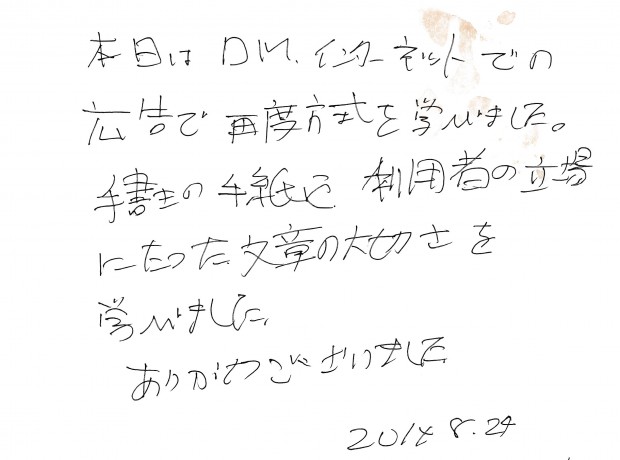 本日はDM.インターネットでの
広告で再度方式を学びました。
手書きの手紙と利用者の立場
にたった文章の大切さを
学びました
ありがとうございました
2014 8.24